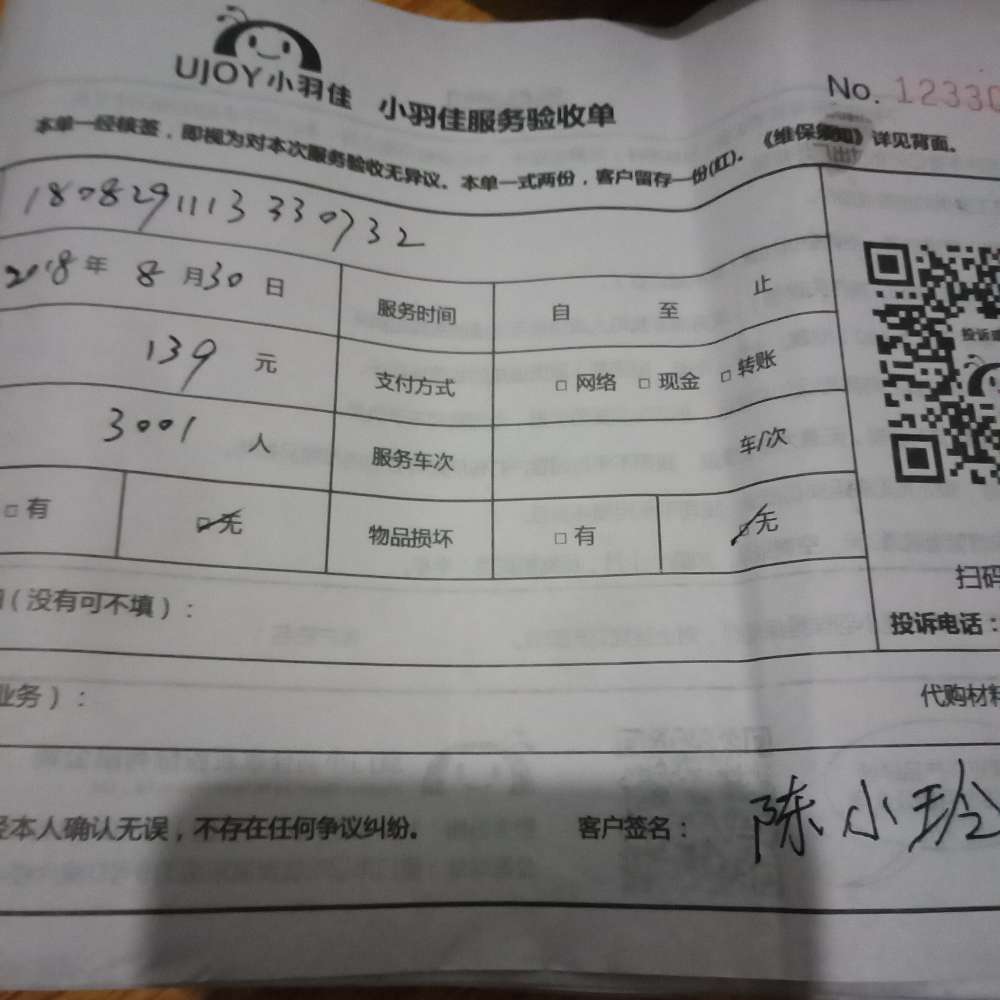 UJOY小羽佳 小羽佳服务验收单 No. 12330
本单一经核签，即视为对本次服务验收无异议。本单一式两份，客户留存一份(红)。《维保须知》详见背面。
1808291113330732
2018年 8月30日 服务时间 自 至 止
139 元 支付方式 □ 网络 □ 现金 □ 转账
3001 人 服务车次 车/次
□ 有 □ 无 物品损坏 □ 有 □ 无
（没有可不填）：
扫码
投诉电话：
业务）：
代购材料
经本人确认无误，不存在任何争议纠纷。 客户签名： 陈小玲